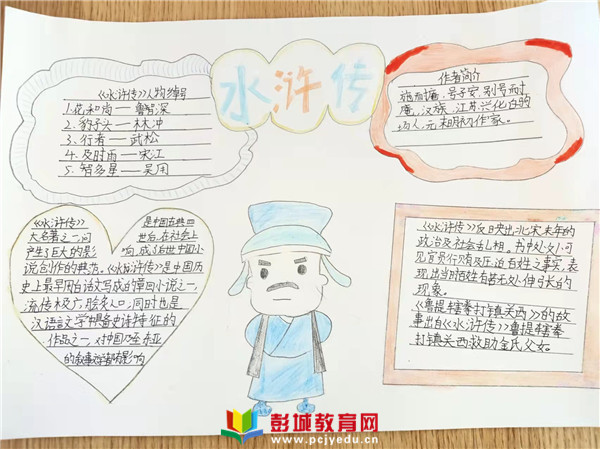 水浒传
《水浒传》人物绰号
1.花和尚——鲁智深
2.豹子头——林冲
3.行者——武松
4.及时雨——宋江
5.智多星——吴用
作者简介
施耐庵，号子安，别号耐
庵，汉族，江苏兴化白驹
场人，元末明初作家。
《水浒传》是中国古典四
大名著之一，问世后，在社会上
产生了巨大的影响，成了后世中国小
说创作的典范。《水浒传》是中国历
史上最早用白话文写成的章回小说之一
流传极广，脍炙人口；同时也是
汉语言文学中具备史诗特征的
作品之一。对中国乃至东亚
的叙事文学都有影响
《水浒传》反映出北宋末年的
政治及社会乱相。书中处处可
见官员行贿及压迫百姓之事实，表
现出当时百姓有苦无处伸冤的
现象。
《鲁提辖拳打镇关西》的故
事出自《水浒传》鲁提辖拳
打镇关西救助金氏父女。
彭城教育网
www.pcjyedu.cn